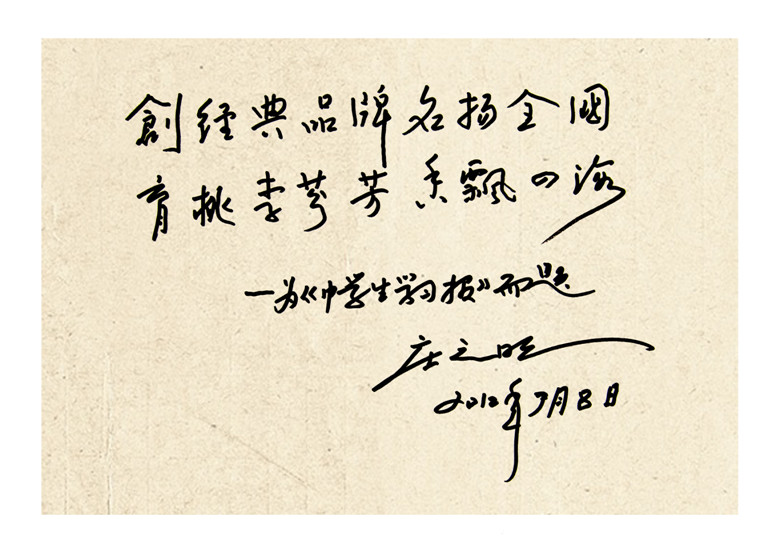 創经典品牌名扬全國
育桃李芬芳香飘四海
—为《中学生学习报》而题
庄之明
2012年7月8日